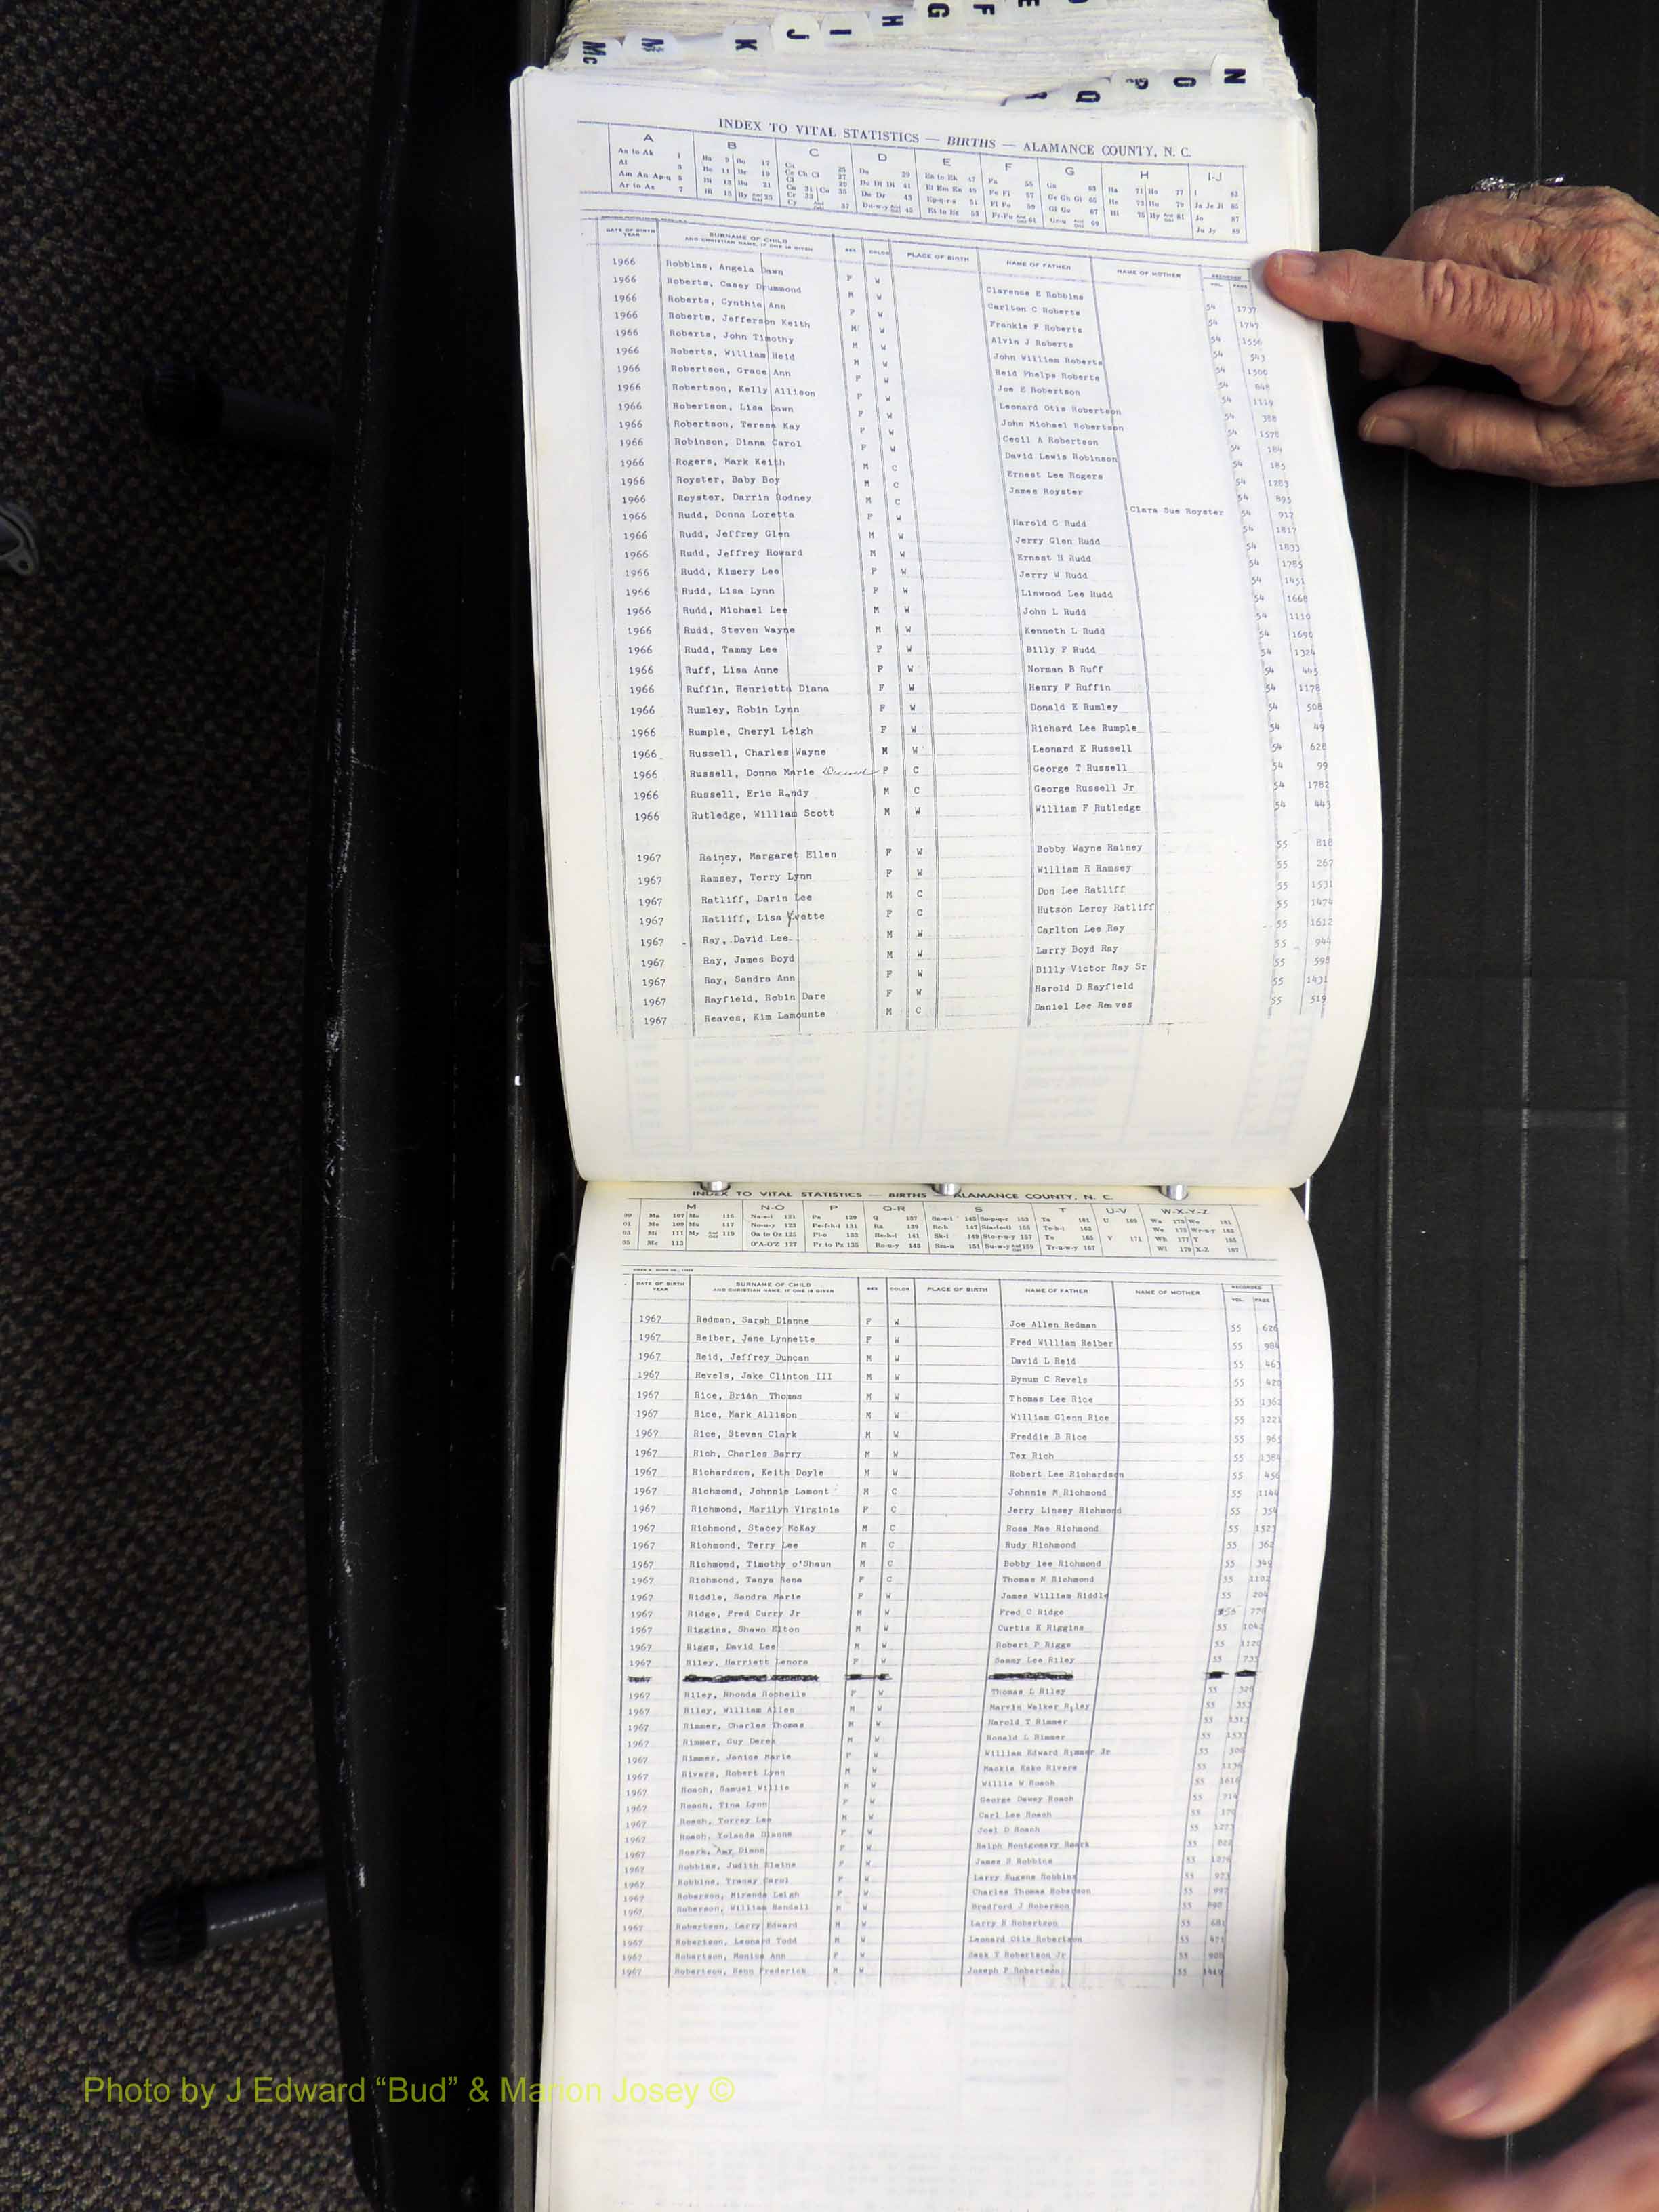 N
O
P
Q
R
E
F
G
H
I
J
K
M
Mc
INDEX TO VITAL STATISTICS — BIRTHS — ALAMANCE COUNTY, N. C.
A B C D E F G H I-J
DATE OF BIRTH YEAR SURNAME OF CHILD AND CHRISTIAN NAME, IF ONE IS GIVEN SEX COLOR PLACE OF BIRTH NAME OF FATHER NAME OF MOTHER RECORDED VOL. PAGE
1966 Robbins, Angela Dawn F W Clarence E Robbins 54 1737
1966 Roberts, Casey Drummond M W Carlton C Roberts 54 1747
1966 Roberts, Cynthia Ann F W Frankie F Roberts 54 1556
1966 Roberts, Jefferson Keith M W Alvin J Roberts 54 543
1966 Roberts, John Timothy M W John William Roberts 54 1500
1966 Roberts, William Reid M W Reid Phelps Roberts 54 848
1966 Robertson, Grace Ann F W Joe E Robertson 54 1119
1966 Robertson, Kelly Allison F W Leonard Otis Robertson 54 388
1966 Robertson, Lisa Dawn F W John Michael Robertson 54 1578
1966 Robertson, Teresa Kay F W Cecil A Robertson 54 184
1966 Robinson, Diana Carol F W David Lewis Robinson 54 185
1966 Rogers, Mark Keith M C Ernest Lee Rogers 54 1283
1966 Royster, Baby Boy M C James Royster 54 895
1966 Royster, Darrin Rodney M C Clara Sue Royster 54 917
1966 Rudd, Donna Loretta F W Harold G Rudd 54 1817
1966 Rudd, Jeffrey Glen M W Jerry Glen Rudd 54 1833
1966 Rudd, Jeffrey Howard M W Ernest H Rudd 54 1785
1966 Rudd, Kimery Lee F W Jerry W Rudd 54 1451
1966 Rudd, Lisa Lynn F W Linwood Lee Rudd 54 1668
1966 Rudd, Michael Lee M W John L Rudd 54 1110
1966 Rudd, Steven Wayne M W Kenneth L Rudd 54 1690
1966 Rudd, Tammy Lee F W Billy F Rudd 54 1324
1966 Ruff, Lisa Anne F W Norman B Ruff 54 445
1966 Ruffin, Henrietta Diana F W Henry F Ruffin 54 1178
1966 Rumley, Robin Lynn F W Donald E Rumley 54 508
1966 Rumple, Cheryl Leigh F W Richard Lee Rumple 54 49
1966 Russell, Charles Wayne M W Leonard E Russell 54 628
1966 Russell, Donna Marie F C George T Russell 54 99
1966 Russell, Eric Randy M C George Russell Jr 54 1782
1966 Rutledge, William Scott M W William F Rutledge 54 443
1967 Rainey, Margaret Ellen F W Bobby Wayne Rainey 55 818
1967 Ramsey, Terry Lynn F W William R Ramsey 55 267
1967 Ratliff, Darin Lee M C Don Lee Ratliff 55 1531
1967 Ratliff, Lisa Yvette F C Hutson Leroy Ratliff 55 1474
1967 Ray, David Lee M W Carlton Lee Ray 55 1612
1967 Ray, James Boyd M W Larry Boyd Ray 55 944
1967 Ray, Sandra Ann F W Billy Victor Ray Sr 55 598
1967 Rayfield, Robin Dare F W Harold D Rayfield 55 1431
1967 Reaves, Kim Lamounte M C Daniel Lee Reaves 55 519
INDEX TO VITAL STATISTICS — BIRTHS — ALAMANCE COUNTY, N. C.
M N-O P Q-R S T U-V W-X-Y-Z
DATE OF BIRTH YEAR SURNAME OF CHILD AND CHRISTIAN NAME, IF ONE IS GIVEN SEX COLOR PLACE OF BIRTH NAME OF FATHER NAME OF MOTHER RECORDED VOL. PAGE
1967 Redman, Sarah Dianne F W Joe Allen Redman 55 626
1967 Reiber, Jane Lynnette F W Fred William Reiber 55 984
1967 Reid, Jeffrey Duncan M W David L Reid 55 463
1967 Revels, Jake Clinton III M W Bynum C Revels 55 420
1967 Rice, Brian Thomas M W Thomas Lee Rice 55 1362
1967 Rice, Mark Allison M W William Glenn Rice 55 1221
1967 Rice, Steven Clark M W Freddie B Rice 55 965
1967 Rich, Charles Barry M W Tex Rich 55 1384
1967 Richardson, Keith Doyle M W Robert Lee Richardson 55 456
1967 Richmond, Johnnie Lamont M C Johnnie M Richmond 55 1144
1967 Richmond, Marilyn Virginia F C Jerry Linsey Richmond 55 354
1967 Richmond, Stacey McKay M C Rosa Mae Richmond 55 1523
1967 Richmond, Terry Lee M C Rudy Richmond 55 362
1967 Richmond, Timothy o'Shaun M C Bobby lee Richmond 55 349
1967 Richmond, Tanya Rena F C Thomas N Richmond 55 1102
1967 Riddle, Sandra Marie F W James William Riddle 55 204
1967 Ridge, Fred Curry Jr M W Fred C Ridge 55 776
1967 Riggins, Shawn Elton M W Curtis E Riggins 55 1042
1967 Riggs, David Lee M W Robert P Riggs 55 1120
1967 Riley, Harriett Lenora F W Sammy Lee Riley 55 735
1967 Riley, Rhonda Rochelle F W Thomas L Riley 55 326
1967 Riley, William Allen M W Marvin Walker Riley 55 353
1967 Rimmer, Charles Thomas M W Harold T Rimmer 55 1313
1967 Rimmer, Guy Derek M W Ronald L Rimmer 55 1533
1967 Rimmer, Janice Marie F W William Edward Rimmer Jr 55
1967 Rivers, Robert Lynn M W Mackie Kako Rivers 55 1136
1967 Roach, Samuel Willie M W Willie W Roach 55 1616
1967 Roach, Tina Lynn F W George Dewey Roach 55 714
1967 Roach, Torrey Lee M W Carl Lee Roach 55
1967 Roach, Yolanda Dianne F W Joel D Roach 55 1273
1967 Roark, Amy Diann F W Ralph Montgomery Roark 55 822
1967 Robbins, Judith Elaine F W James S Robbins 55 1276
1967 Robbins, Tracey Carol F W Larry Eugene Robbins 55 973
1967 Roberson, Miranda Leigh F W Charles Thomas Roberson 55 997
1967 Roberson, William Randall M W Bradford J Roberson 55
1967 Robertson, Larry Edward M W Larry R Robertson 55 681
1967 Robertson, Leonard Todd M W Leonard Otis Robertson 55 471
1967 Robertson, Monica Ann F W T Robertson Jr 55
1967 Robertson, Frederick M W Joseph P Robertson 55 1419
Photo by J Edward “Bud” & Marion Josey ©